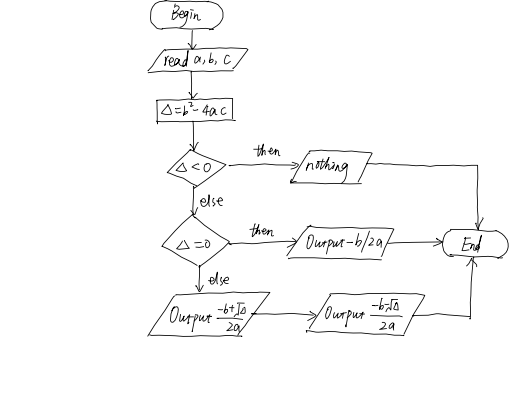 Begin
read a, b, c
Δ=b²-4ac
Δ<0
then
nothing
else
Δ=0
then
Output-b/2a
End
else
Output (-b+√Δ)/2a
Output (-b-√Δ)/2a